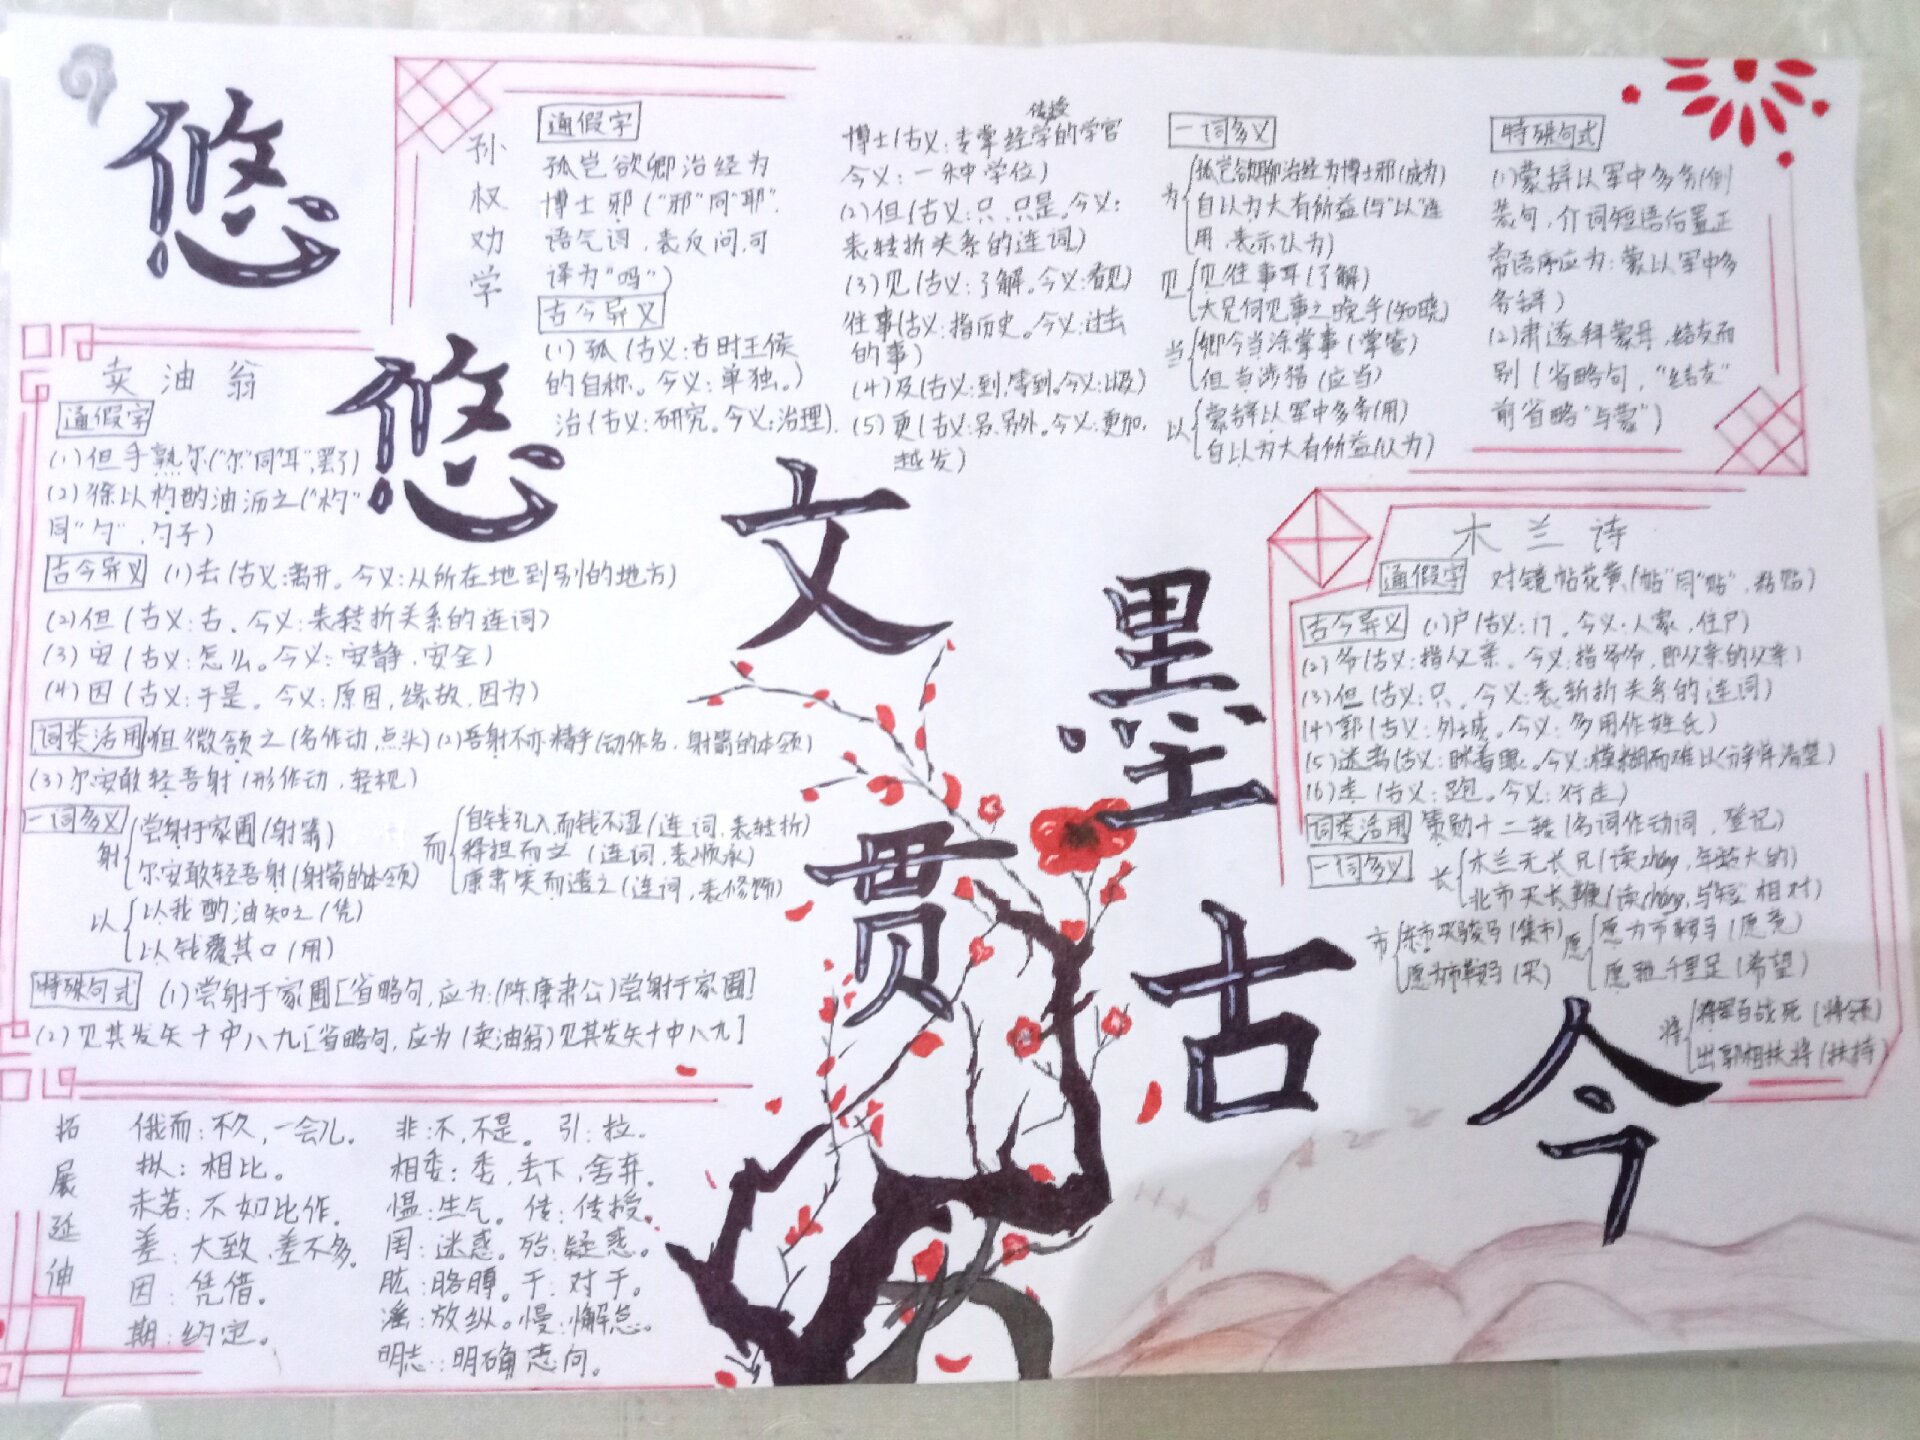 悠
悠
文
墨
贯
古
今
孙权劝学
通假字
孤岂欲卿治经为
博士邪("邪"同"耶",
语气词,表反问,可
译为"吗")
古今异义
(1)孤(古义:古时王侯
的自称。今义:单独。)
治(古义:研究。今义:治理).
传授
博士(古义:专掌经学的学官
今义:一种学位)
(2)但(古义:只,只是。今义:
表转折关系的连词)
(3)见(古义:了解。今义:看见)
往事(古义:指历史。今义:过去
的事)
(4)及(古义:到,等到。今义:以及)
(5)更(古义:另,另外。今义:更加,
越发)
一词多义
为 孤岂欲卿治经为博士邪(成为)
自以为大有所益(与"以"连
用,表示认为)
见 见往事耳(了解)
大兄何见事之晚乎(知晓)
当 卿今当涂掌事(掌管)
但当涉猎(应当)
以 蒙辞以军中多务(用)
自以为大有所益(认为)
特殊句式
(1)蒙辞以军中多务(倒
装句,介词短语后置正
常语序应为:蒙以军中多
务辞)
(2)肃遂拜蒙母,结友而
别(省略句,"结友"
前省略"与蒙")
卖油翁
通假字
(1)但手熟尔("尔"同"耳",罢了)
(2)徐以杓酌油沥之("杓"
同"勺",勺子)
古今异义 (1)去(古义:离开。今义:从所在地到别的地方)
(2)但(古义:古,今义:表转折关系的连词)
(3)安(古义:怎么。今义:安静,安全)
(4)因(古义:于是。今义:原因,缘故,因为)
词类活用 但微颔之(名作动,点头)(2)吾射不亦精乎(动作名,射箭的本领)
(3)尔安敢轻吾射(形作动,轻视)
一词多义
射 尝射于家圃(射箭)
尔安敢轻吾射(射箭的本领)
而 自钱孔入,而钱不湿(连词,表转折)
释担而立(连词,表顺承)
康肃笑而遣之(连词,表修饰)
以 以我酌油知之(凭)
以钱覆其口(用)
特殊句式 (1)尝射于家圃[省略句,应为:(陈康肃公)尝射于家圃]
(2)见其发矢十中八九[省略句,应为(卖油翁)见其发矢十中八九]
木兰诗
通假字 对镜帖花黄("帖"同"贴",粘贴)
古今异义 (1)户(古义:门,今义:人家,住户)
(2)爷(古义:指父亲。今义:指爷爷,即父亲的父亲)
(3)但(古义:只,今义:表转折关系的连词)
(4)郭(古义:外城。今义:多用作姓氏)
(5)迷离(古义:眯着眼。今义:模糊而难以分辨清楚)
(6)走(古义:跑。今义:行走)
词类活用 策勋十二转(名词作动词,登记)
一词多义 长 木兰无长兄(读zhǎng,年龄大的)
北市买长鞭(读cháng,与"短"相对)
市 东市买骏马(集市)
愿为市鞍马(买)
愿 愿为市鞍马(愿意)
愿驰千里足(希望)
将 将军百战死(将领)
出郭相扶将(扶持)
拓展延伸
俄而:不久,一会儿。
拟:相比。
未若:不如比作.
差:大致,差不多.
因:凭借。
期:约定。
非:不,不是。引:拉.
相委:委,丢下,舍弃.
愠:生气。传:传授.
罔:迷惑。殆:疑惑。
肱:胳膊。于:对于。
淫:放纵。慢:懈怠.
明志:明确志向。